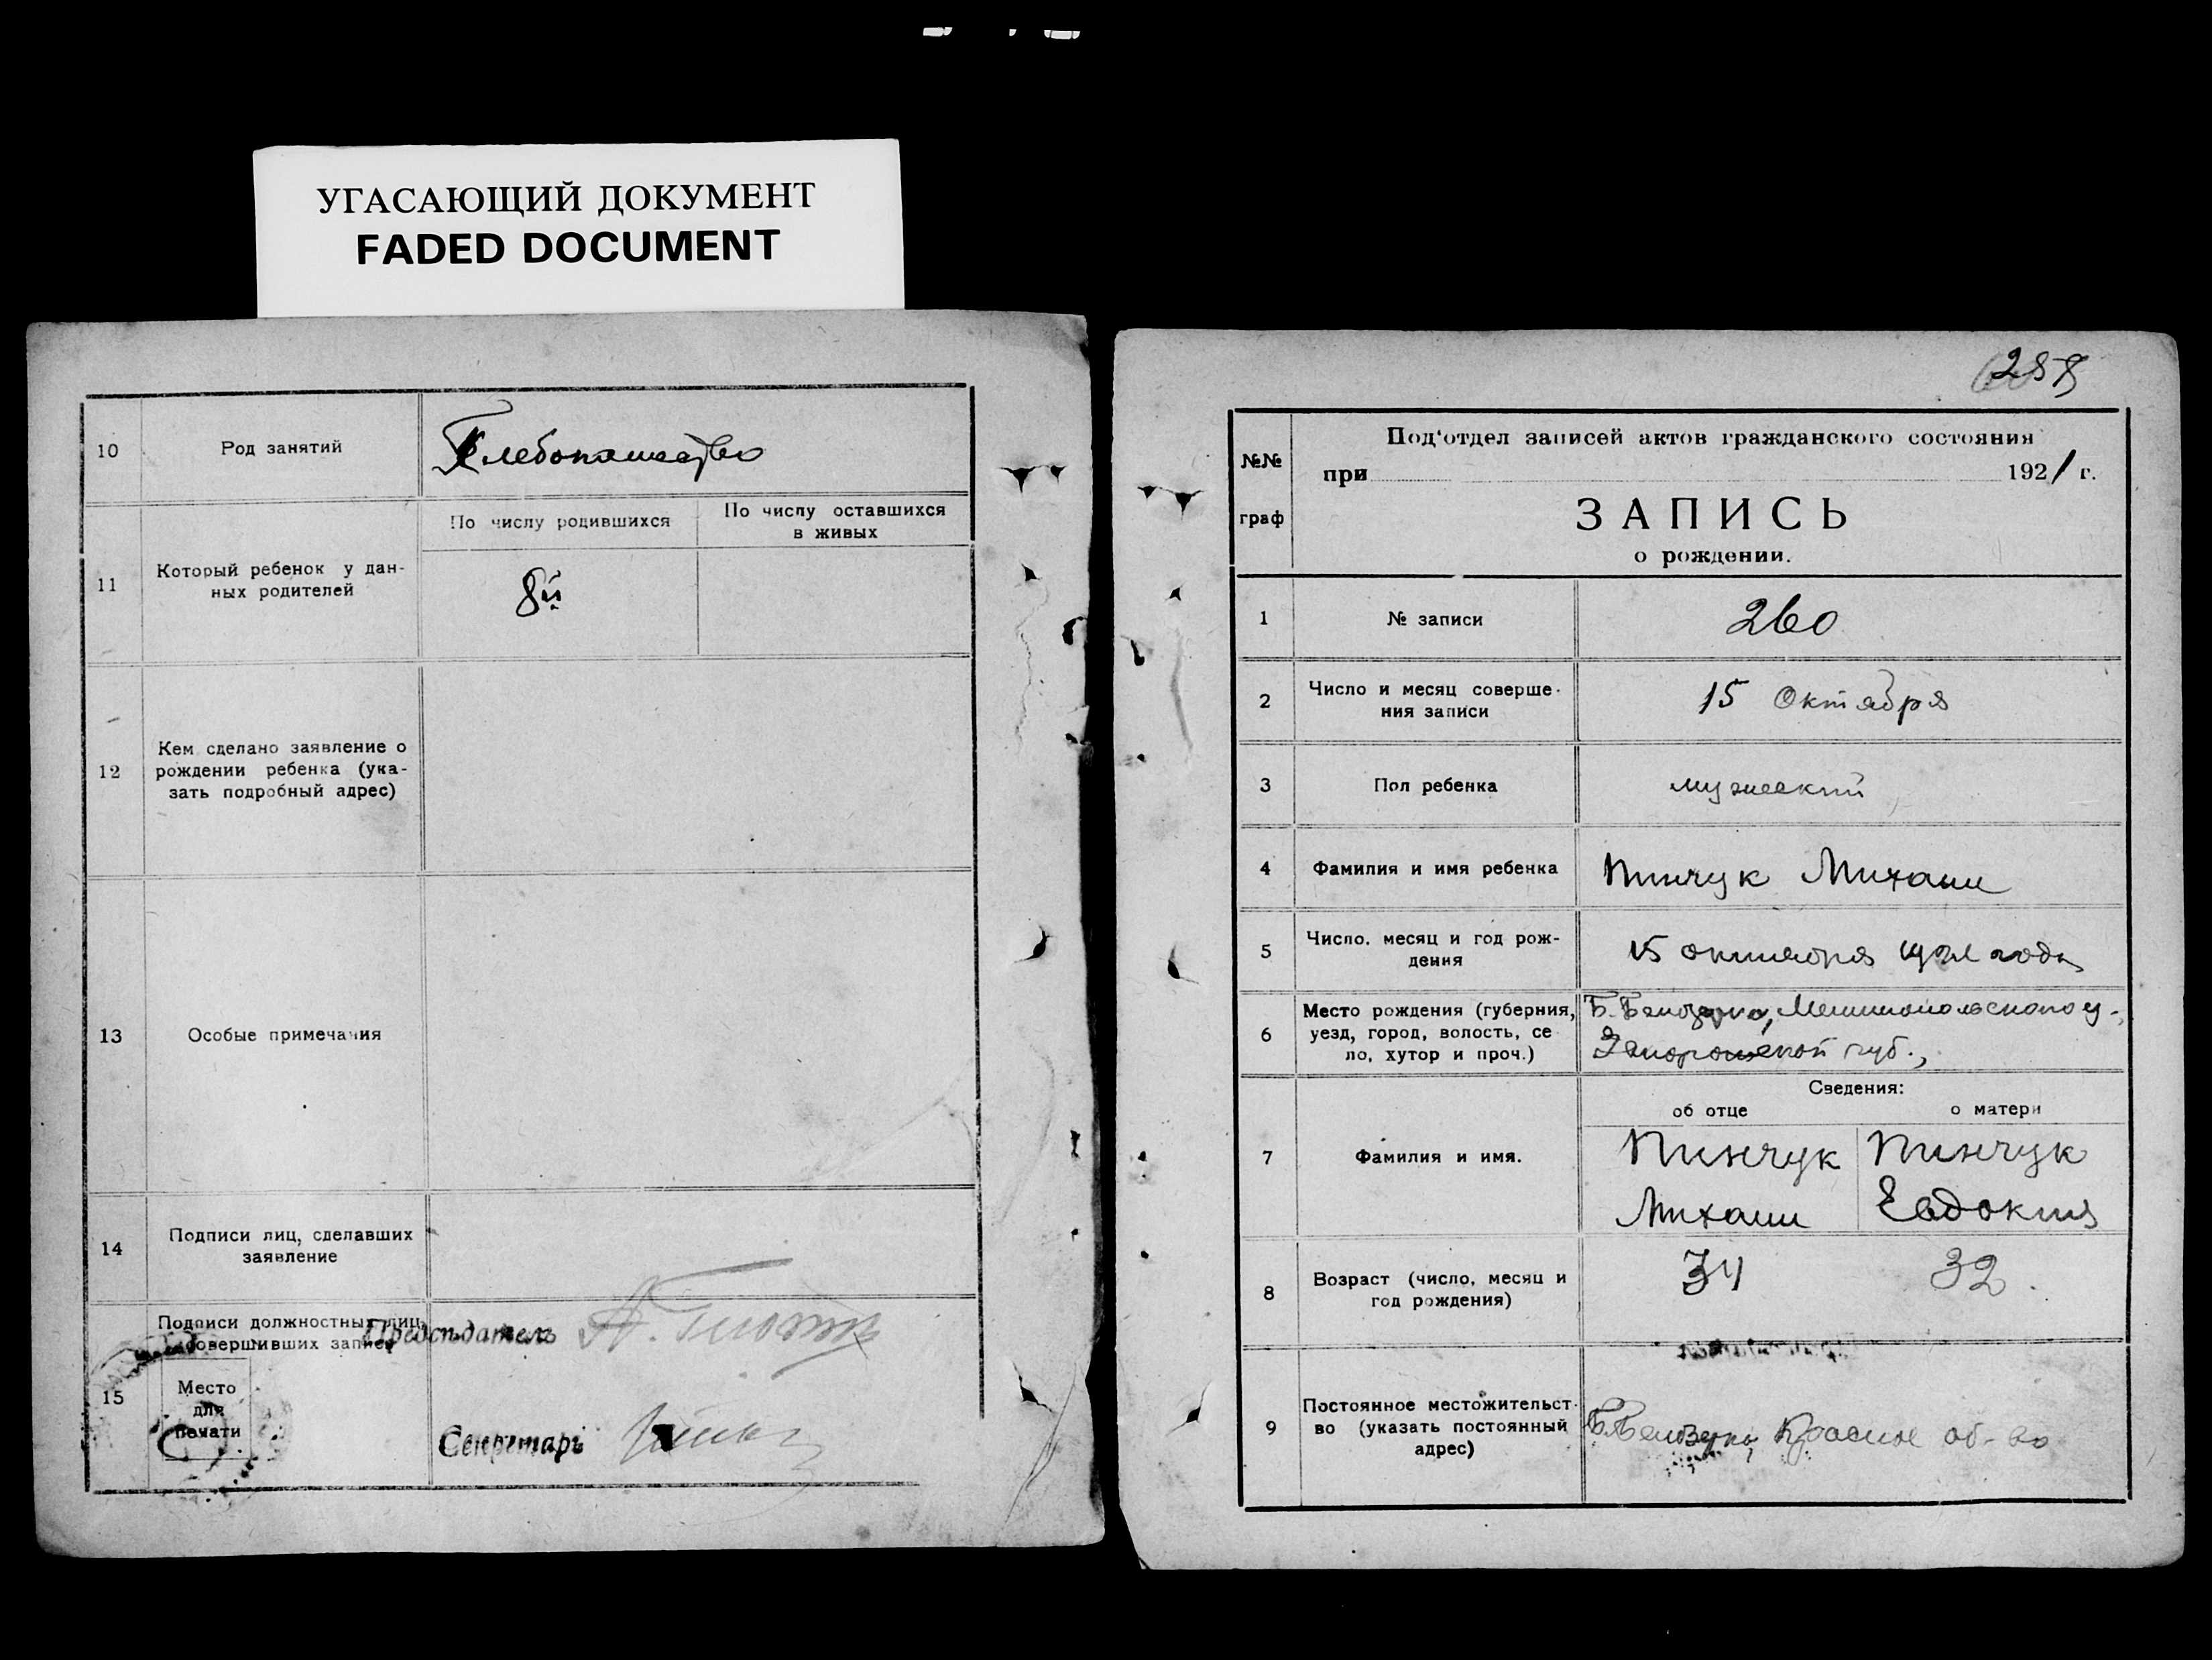 УГАСАЮЩИЙ ДОКУМЕНТ
FADED DOCUMENT
10
Род занятий
Хлебопашество
11
Который ребенок у дан-
ных родителей
По числу родившихся
По числу оставшихся
в живых
8й
12
Кем сделано заявление о
рождении ребенка (ука-
зать подробный адрес)
13
Особые примечания
14
Подписи лиц, сделавших
заявление
15
Подписи должностных лиц,
совершивших запись
Место
для
печати
Председатель
Секретарь
258
№№
граф
Под'отдел записей актов гражданского состояния
при 1921 г.
ЗАПИСЬ
о рождении.
1
№ записи
260
2
Число и месяц соверше-
ния записи
15 Октября
3
Пол ребенка
мужеский
4
Фамилия и имя ребенка
Пинчук Михаил
5
Число, месяц и год рож-
дения
15 октября 1921 года
6
Место рождения (губерния,
уезд, город, волость, се
ло, хутор и проч.)
Б. Белозерка, Мелитопольского у.,
Запорожской губ.,
Сведения:
об отце
о матери
7
Фамилия и имя.
Пинчук
Михаил
Пинчук
Евдокия
8
Возраст (число, месяц и
год рождения)
34
32.
9
Постоянное местожительст-
во (указать постоянный
адрес)
Б. Белозерка, Красное об-во